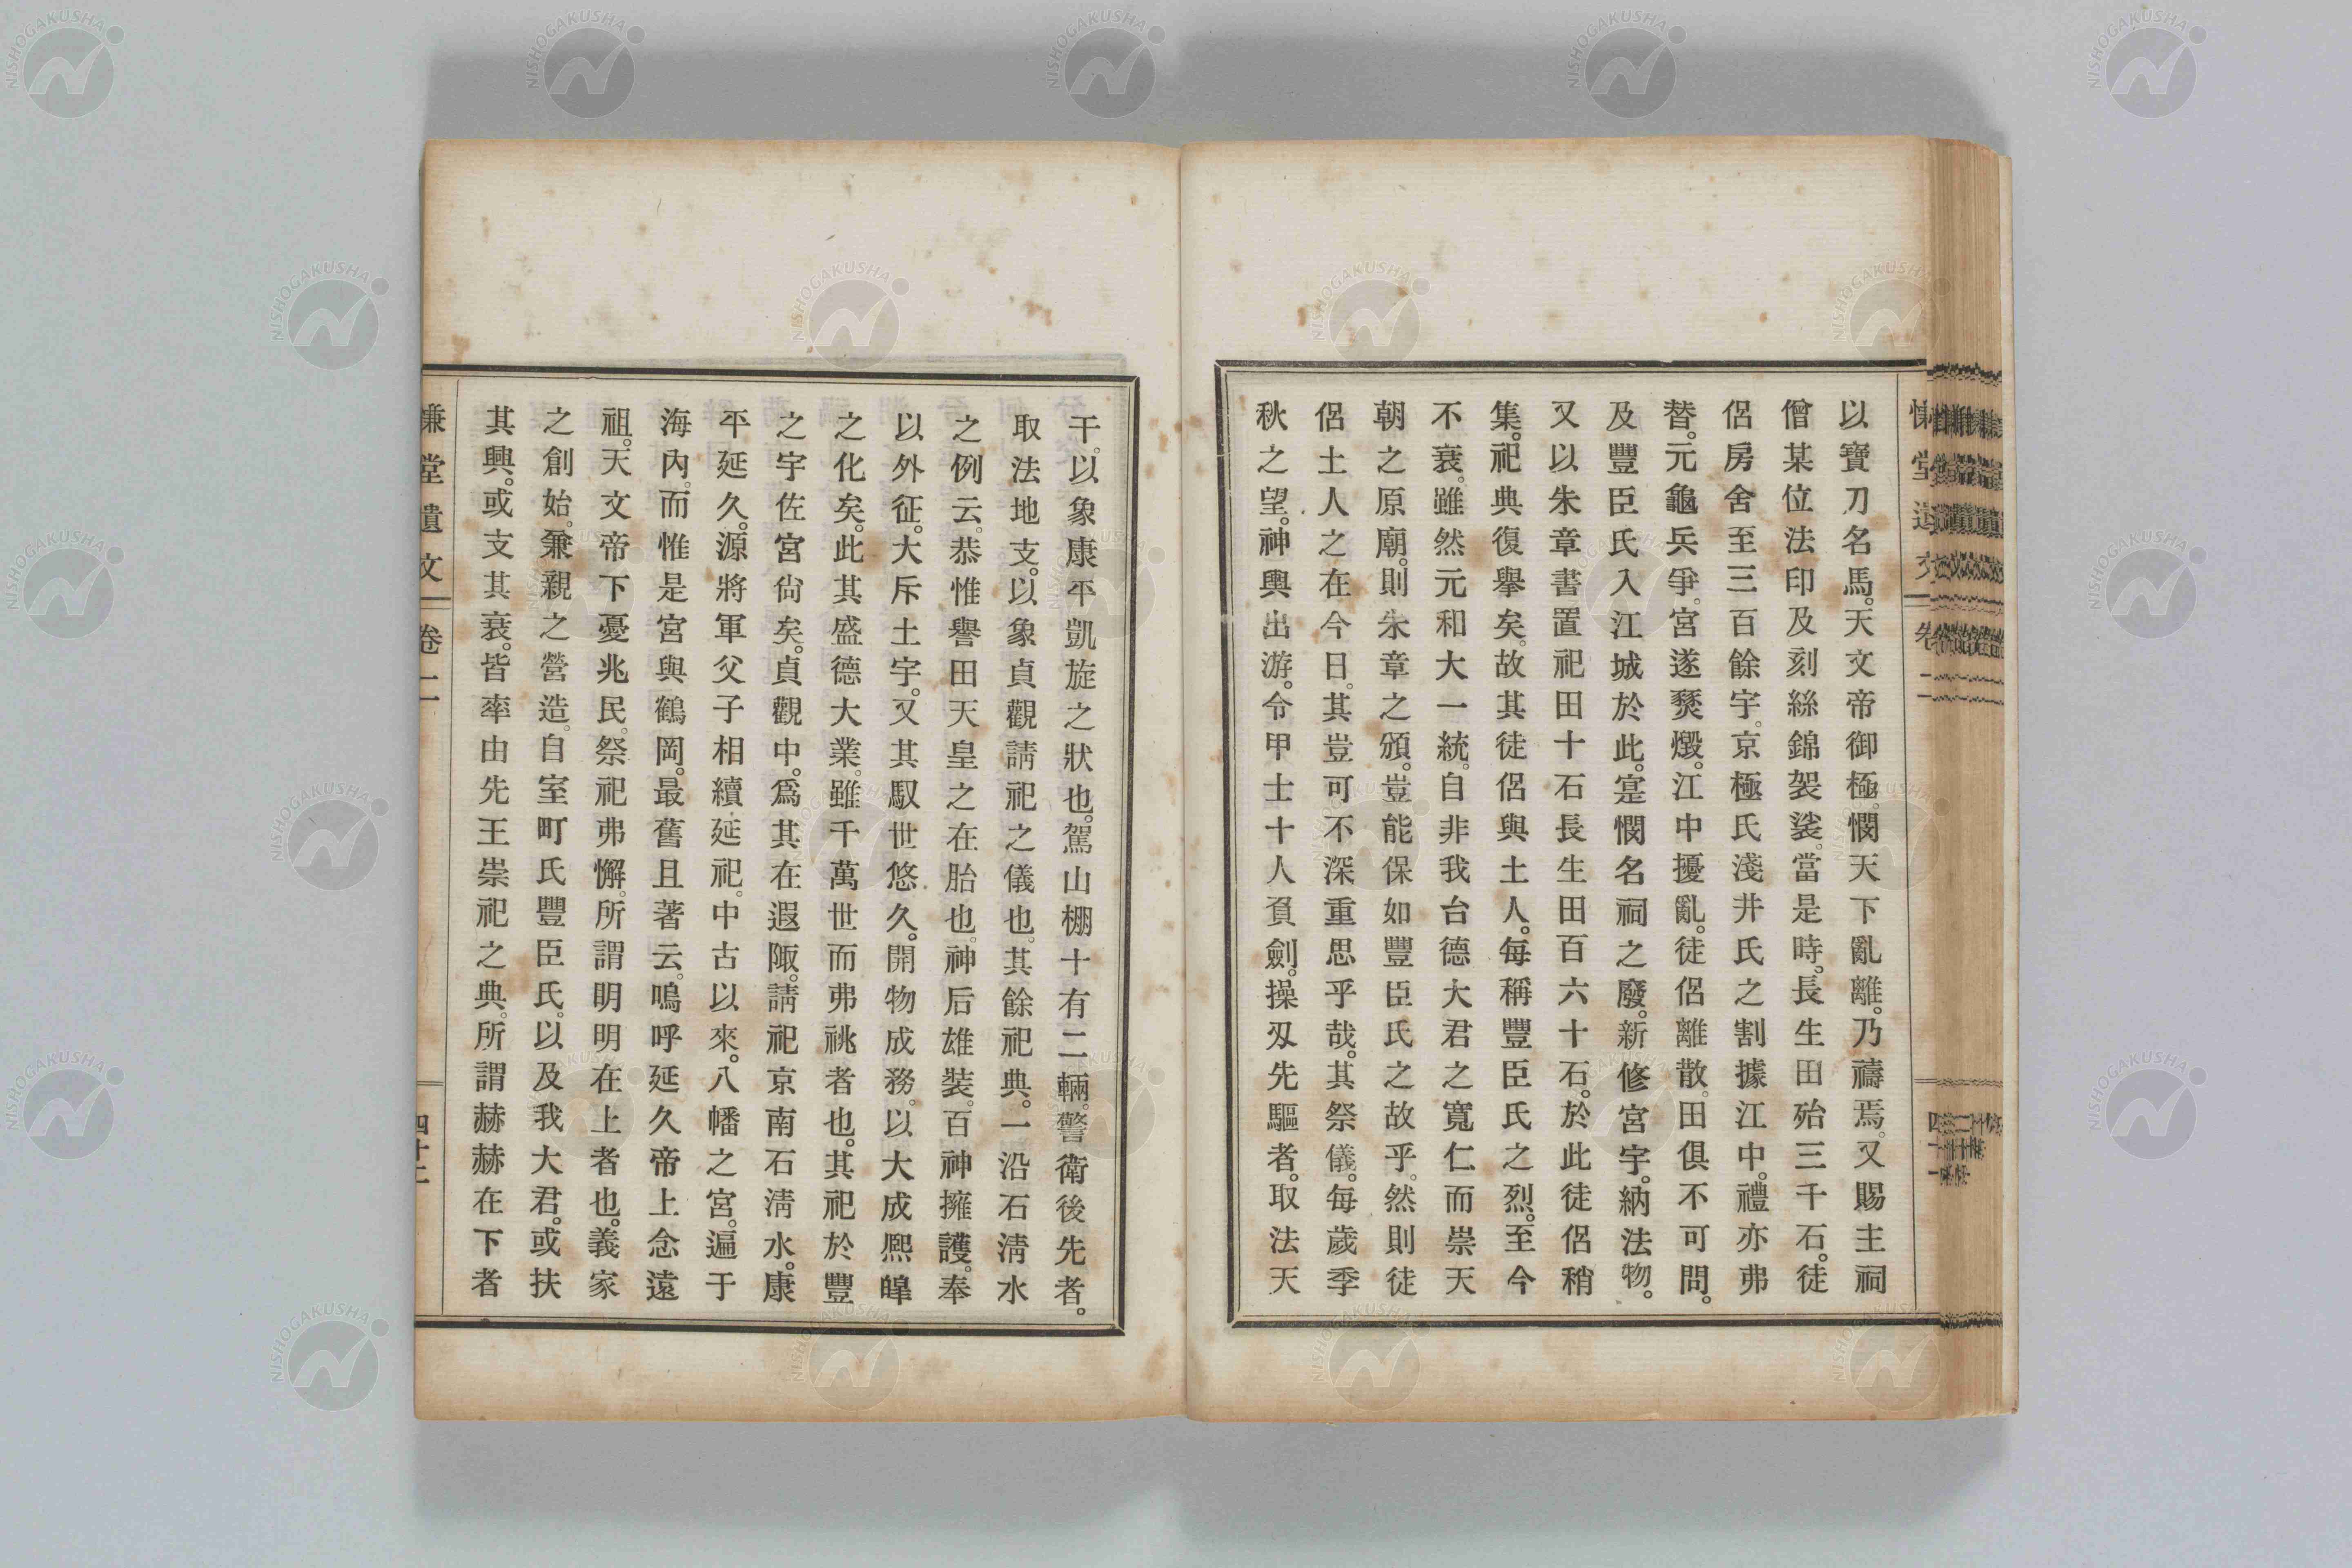 以寶刀名馬。天文帝御極。憫天下亂離。乃禱焉。又賜主祠
僧某位法印及刻絲錦袈裟。當是時。長生田殆三千石。徒
侶房舍至三百餘宇。京極氏淺井氏之割據江中。禮亦弗
替。元龜兵爭。宮遂燹燬。江中擾亂。徒侶離散。田俱不可問。
及豐臣氏入江城於此。寔憫名祠之廢。新修宮宇。納法物。
又以朱章書置祀田十石長生田百六十石。於此徒侶稍
集。祀典復擧矣。故其徒侶與土人。每稱豐臣氏之烈。至今
不衰。雖然元和大一統。自非我台德大君之寬仁而崇天
朝之原廟。則朱章之頒。豈能保如豐臣氏之故乎。然則徒
侶土人之在今日。其豈可不深重思乎哉。其祭儀。每歲季
秋之望。神輿出游。令甲士十人負劍。操刄先驅者。取法天
干。以象康平凱旋之狀也。駕山棚十有二輛。警衛後先者。
取法地支。以象貞觀請祀之儀也。其餘祀典。一沿石淸水
之例云。恭惟譽田天皇之在胎也。神后雄裝。百神擁護。奉
以外征。大斥土宇。又其馭世悠久。開物成務。以大成熙皥
之化矣。此其盛德大業。雖千萬世而弗祧者也。其祀於豐
之宇佐宮尙矣。貞觀中。爲其在遐陬。請祀京南石淸水。康
平延久。源將軍父子相續延祀。中古以來。八幡之宮。遍于
海內。而惟是宮與鶴岡。最舊且著云。嗚呼延久帝上念遠
祖。天文帝下憂兆民。祭祀弗懈。所謂明明在上者也。義家
之創始。兼親之營造。自室町氏豐臣氏。以及我大君。或扶
其興。或支其衰。皆率由先王崇祀之典。所謂赫赫在下者
慊堂遺文 卷二 四十二